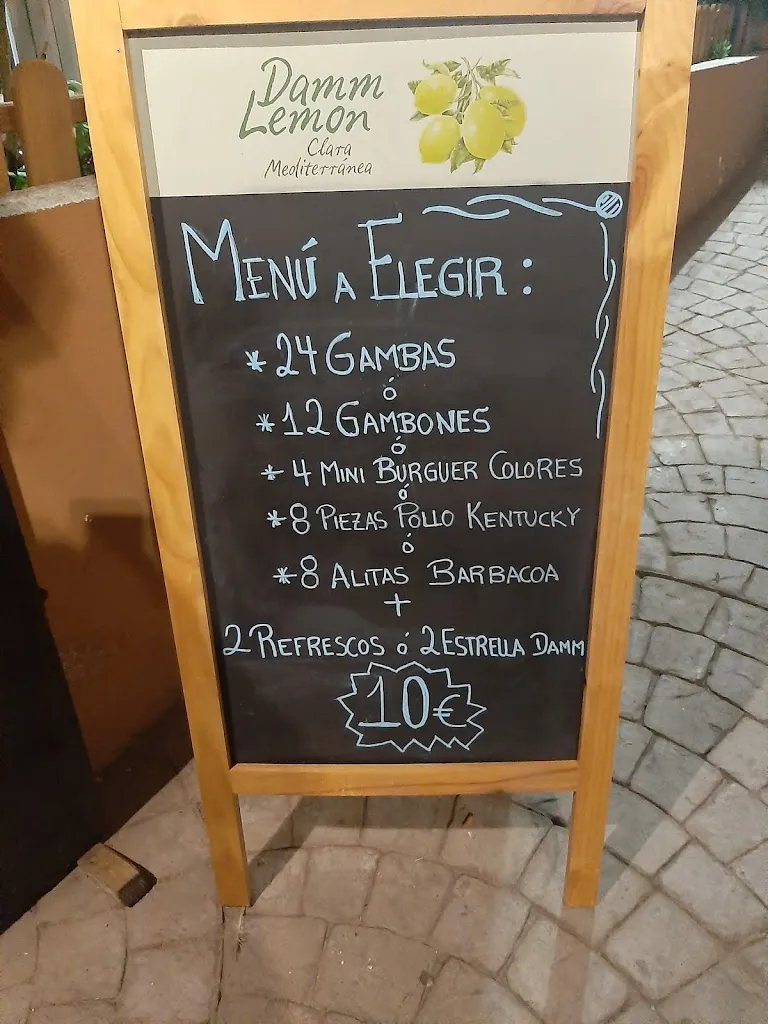 Damm
Lemon
Clara
Mediterránea
MENÚ A ELEGIR:
* 24 GAMBAS
ó
* 12 GAMBONES
ó
* 4 MINI BURGUER COLORES
ó
* 8 PIEZAS POLLO KENTUCKY
ó
* 8 ALITAS BARBACOA
+
2 REFRESCOS ó 2 ESTRELLA DAMM
10€